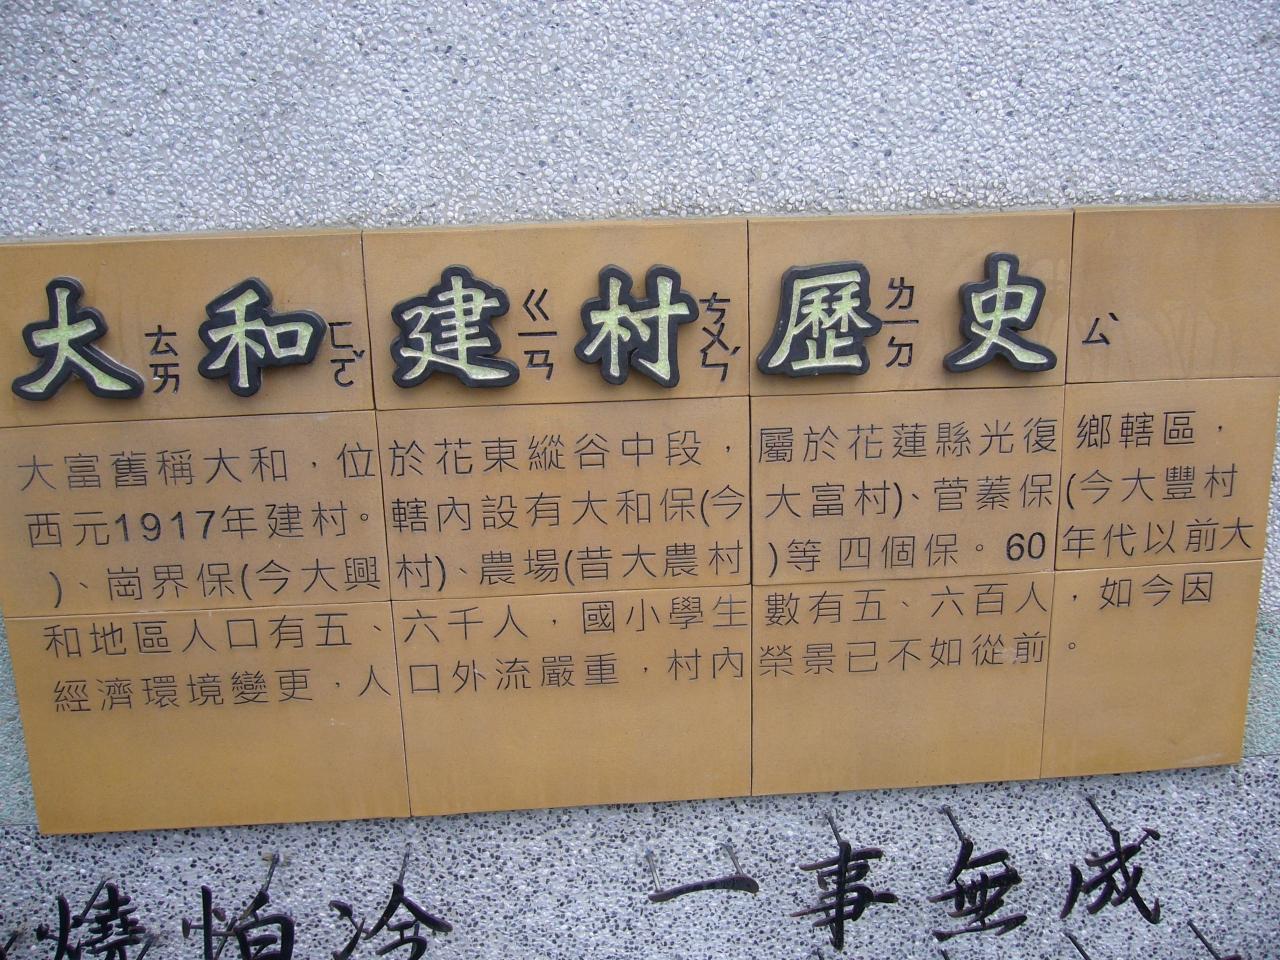 大和建村歷史
ㄊㄞ ㄏㄜˊ ㄍㄧㄢ ㄘㄨㄣˊ ㄌㄧㄉ ㄙ
大富舊稱大和，位於花東縱谷中段，屬於花蓮縣光復鄉轄區，
西元1917年建村。轄內設有大和保(今大富村)、菅蓁保(今大豐村
)、崗界保(今大興村)、農場(昔大農村)等四個保。60年代以前大
和地區人口有五、六千人，國小學生數有五、六百人，如今因
經濟環境變更，人口外流嚴重，村內榮景已不如從前。
燒怕冷 一事無成